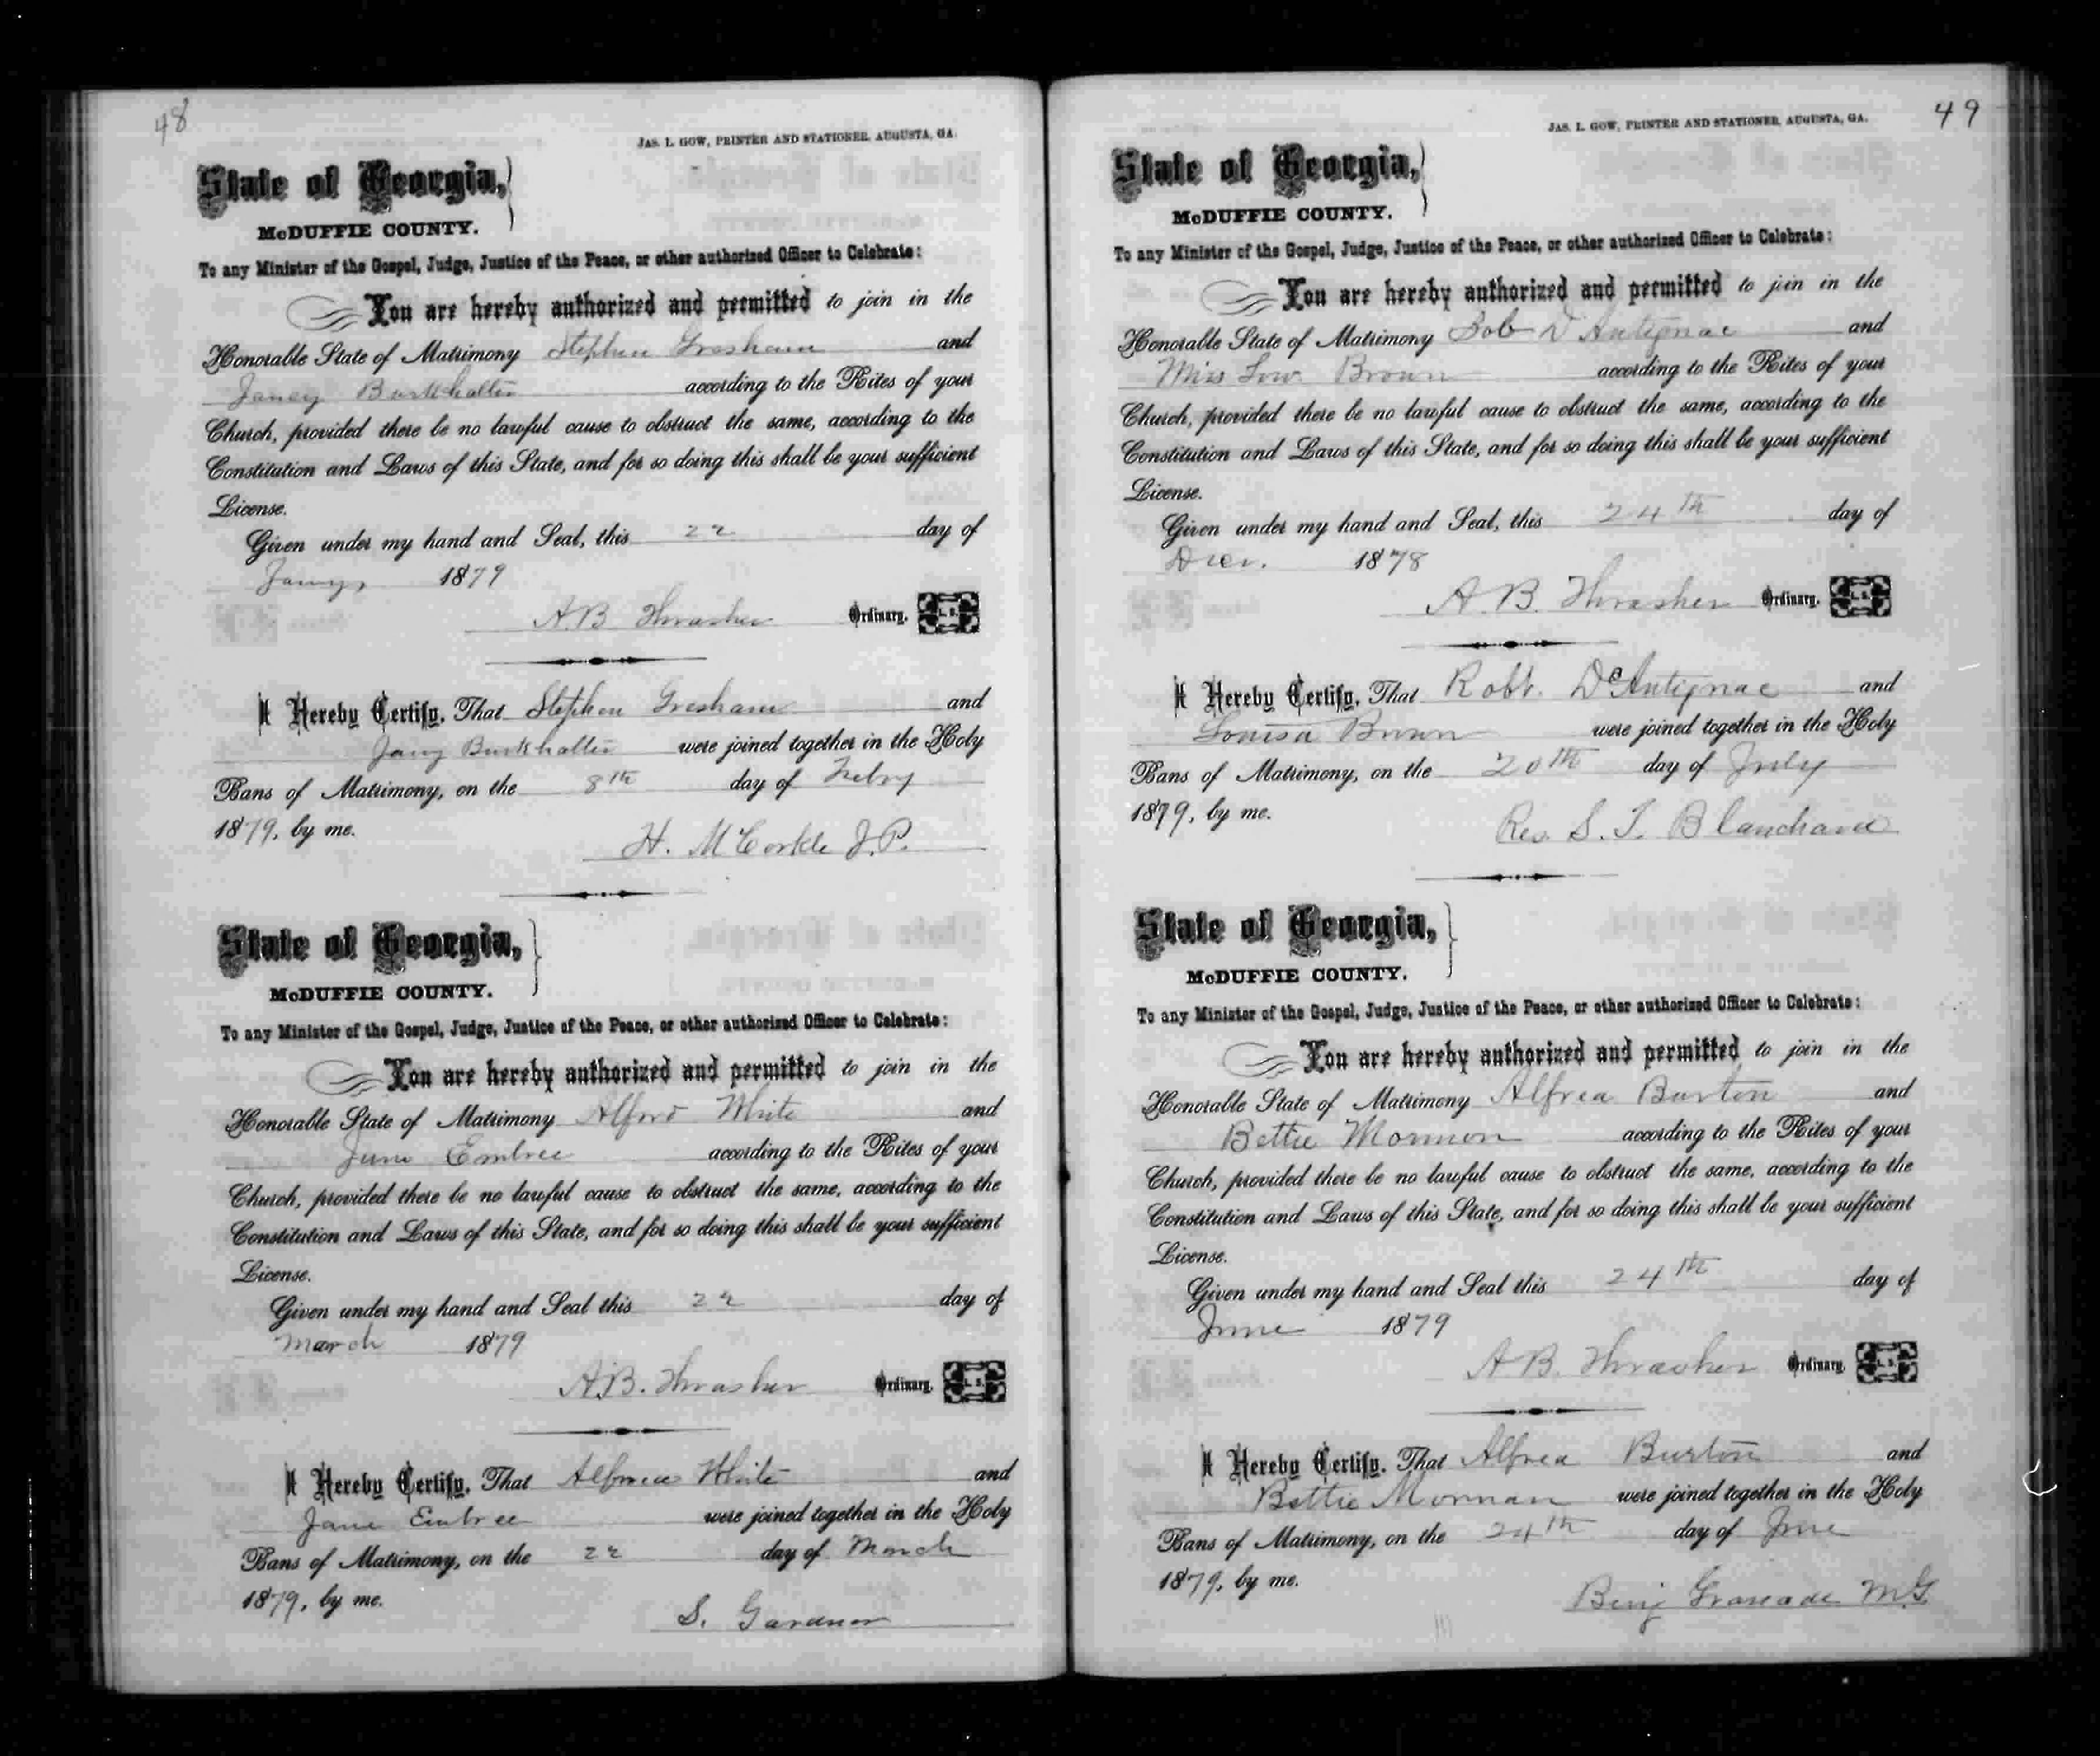 48
JAS. L. GOW, PRINTER AND STATIONER, AUGUSTA, GA.
State of Georgia,
McDUFFIE COUNTY.
To any Minister of the Gospel, Judge, Justice of the Peace, or other authorized Officer to Celebrate:
You are hereby authorized and permitted to join in the
Honorable State of Matrimony Stephen Gresham and
Janey Burkhalter according to the Rites of your
Church, provided there be no lawful cause to obstruct the same, according to the
Constitution and Laws of this State, and for so doing this shall be your sufficient
License.
Given under my hand and Seal, this 22 day of
Jany, 1879
A.B Thrasher Ordinary. L. S.
I Hereby Certify, That Stephen Gresham and
Jany Burkhalter were joined together in the Holy
Bans of Matrimony, on the 8th day of Feby
1879, by me.
H. McCorkle J.P.
State of Georgia,
McDUFFIE COUNTY.
To any Minister of the Gospel, Judge, Justice of the Peace, or other authorized Officer to Celebrate:
You are hereby authorized and permitted to join in the
Honorable State of Matrimony Alford White and
Jane Embree according to the Rites of your
Church, provided there be no lawful cause to obstruct the same, according to the
Constitution and Laws of this State, and for so doing this shall be your sufficient
License.
Given under my hand and Seal this 22 day of
March 1879
A.B. Thrasher Ordinary. L. S.
I Hereby Certify, That White and
Jane Embree were joined together in the Holy
Bans of Matrimony, on the 22 day of March
1879, by me.
S. Gardner
49
JAS. L. GOW, PRINTER AND STATIONER, AUGUSTA, GA.
State of Georgia,
McDUFFIE COUNTY.
To any Minister of the Gospel, Judge, Justice of the Peace, or other authorized Officer to Celebrate:
You are hereby authorized and permitted to join in the
Honorable State of Matrimony Bob D'Antignac and
Miss Lou Brown according to the Rites of your
Church, provided there be no lawful cause to obstruct the same, according to the
Constitution and Laws of this State, and for so doing this shall be your sufficient
License.
Given under my hand and Seal, this 24th day of
Decr. 1878
A.B. Thrasher Ordinary. L. S.
I Hereby Certify, That Robt. DeAntignac and
Louisa Brown were joined together in the Holy
Bans of Matrimony, on the 20th day of July
1879, by me.
Rev. S. T. Blanchard
State of Georgia,
McDUFFIE COUNTY.
To any Minister of the Gospel, Judge, Justice of the Peace, or other authorized Officer to Celebrate:
You are hereby authorized and permitted to join in the
Honorable State of Matrimony Alfred Burton and
Bettie Mormon according to the Rites of your
Church, provided there be no lawful cause to obstruct the same, according to the
Constitution and Laws of this State, and for so doing this shall be your sufficient
License.
Given under my hand and Seal this 24th day of
June 1879
A.B. Thrasher Ordinary. L. S.
I Hereby Certify, That Alfred Burton and
Bettie Morman were joined together in the Holy
Bans of Matrimony, on the 24th day of June
1879, by me.
Benj M.G.